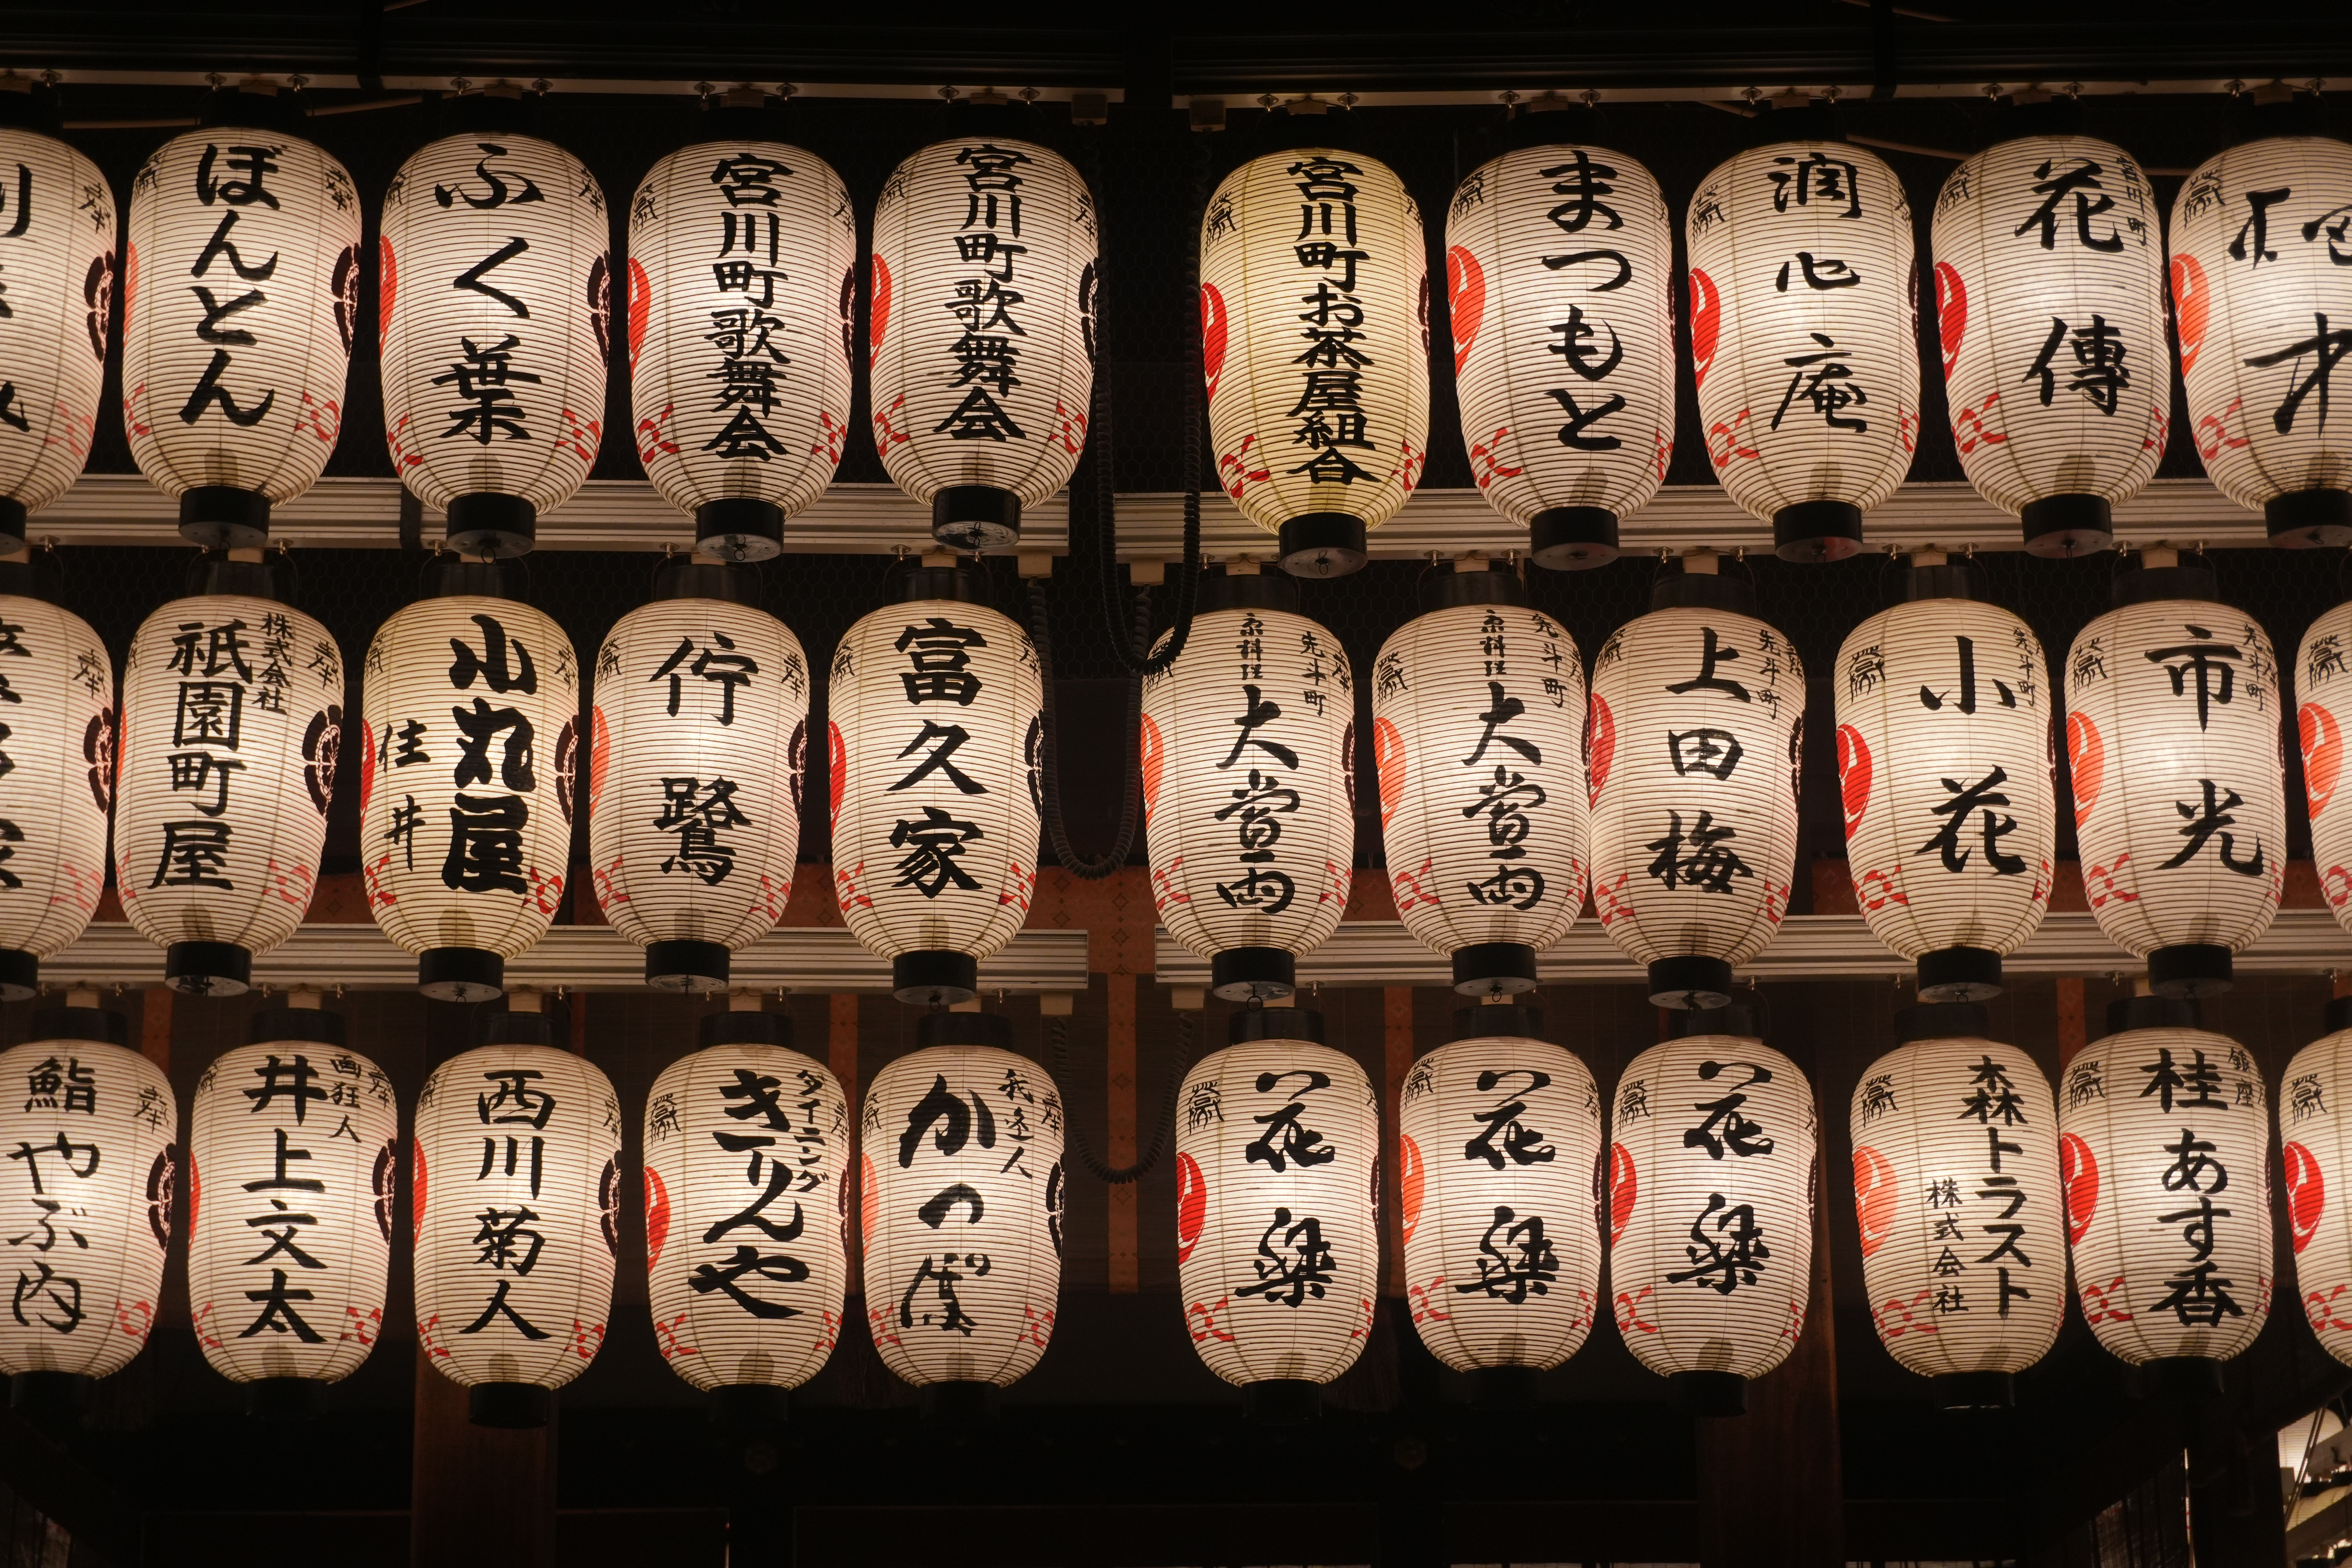 ぼんとん
ふく葉
宮川町歌舞会
宮川町歌舞会
宮川町お茶屋組合
まつもと
潤心庵
宮川町
花傳
才
株式会社
祇園町屋
小丸屋
住井
佇鷺
富久家
先斗町
京料理
大當両
先斗町
京料理
大當両
先斗町
上田梅
先斗町
小花
先斗町
市光
鮨
やぶ内
画狂人
井上文太
西川菊人
ダイニング
きりんや
我逢人
かっぽ
花梁
花梁
花梁
森トラスト
株式会社
銀座
桂あす香